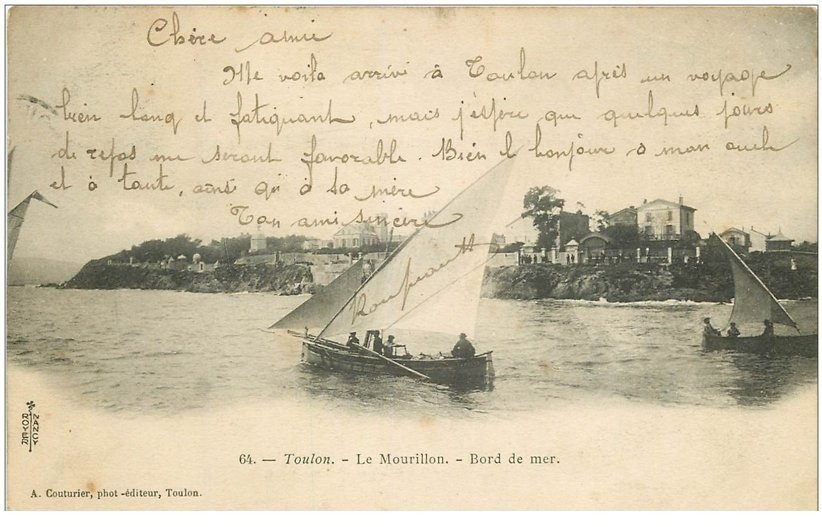 Chère amie
Me voila arrivé à Toulon après un voyage
bien long et fatiguant, mais j'espère que quelques jours
de repos me seront favorable. Bien l bonjour a mon oncle
et à tante, ainsi qu'à sa mère
Ton ami sincère
ROYER
NANCY
64. — Toulon. - Le Mourillon. - Bord de mer.
A. Couturier, phot-éditeur, Toulon.